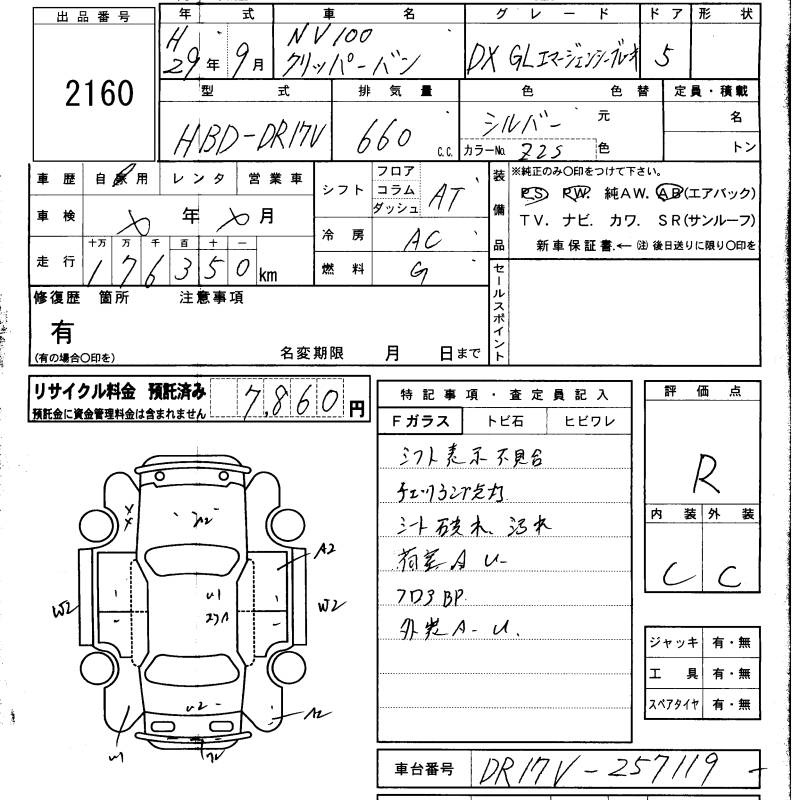 出品番号
2160
年 式
H29年9月
車 名
NV100
クリッパーバン
グレード
DX GLエマージェンシーブレーキ
ドア
5
形 状
型 式
HBD-DR17V
排気量
660 c.c.
色 色替
シルバー 元
カラーNo. Z2S 色
定員・積載
名
トン
車歴 自家用 レンタ 営業車
車検 年 月
走行 十万 万 千 百 十 一
176350km
シフト フロア コラム ダッシュ AT
冷房 AC
燃料 G
装備品
※純正のみ〇印をつけて下さい。
PS PW. 純AW. AB(エアバック)
TV. ナビ. カワ. SR(サンルーフ)
新車保証書.←(注)後日送りに限り〇印を
セールスポイント
修復歴 箇所 注意事項
有
(有の場合〇印を)
名変期限 月 日まで
リサイクル料金 預託済み
預託金に資金管理料金は含まれません
7,860円
特記事項・査定員記入
Fガラス トビ石 ヒビワレ
シフト表示不具合
チェックランプ点灯
シート破れ、汚れ
荷室A U-
フロアBP.
外装A-U.
評価点
R
内装 外装
C C
A2
W2
W2
U1
U2
A2
ジャッキ 有・無
工具 有・無
スペアタイヤ 有・無
車台番号 DR17V-257119